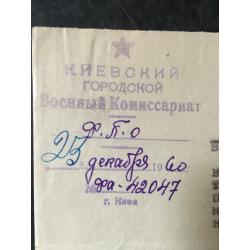 КИЕВСКИЙ
ГОРОДСКОЙ
Военный Комиссариат
Ф.П.О
25 декабря 1960
№ Фа-42047
г. Киев